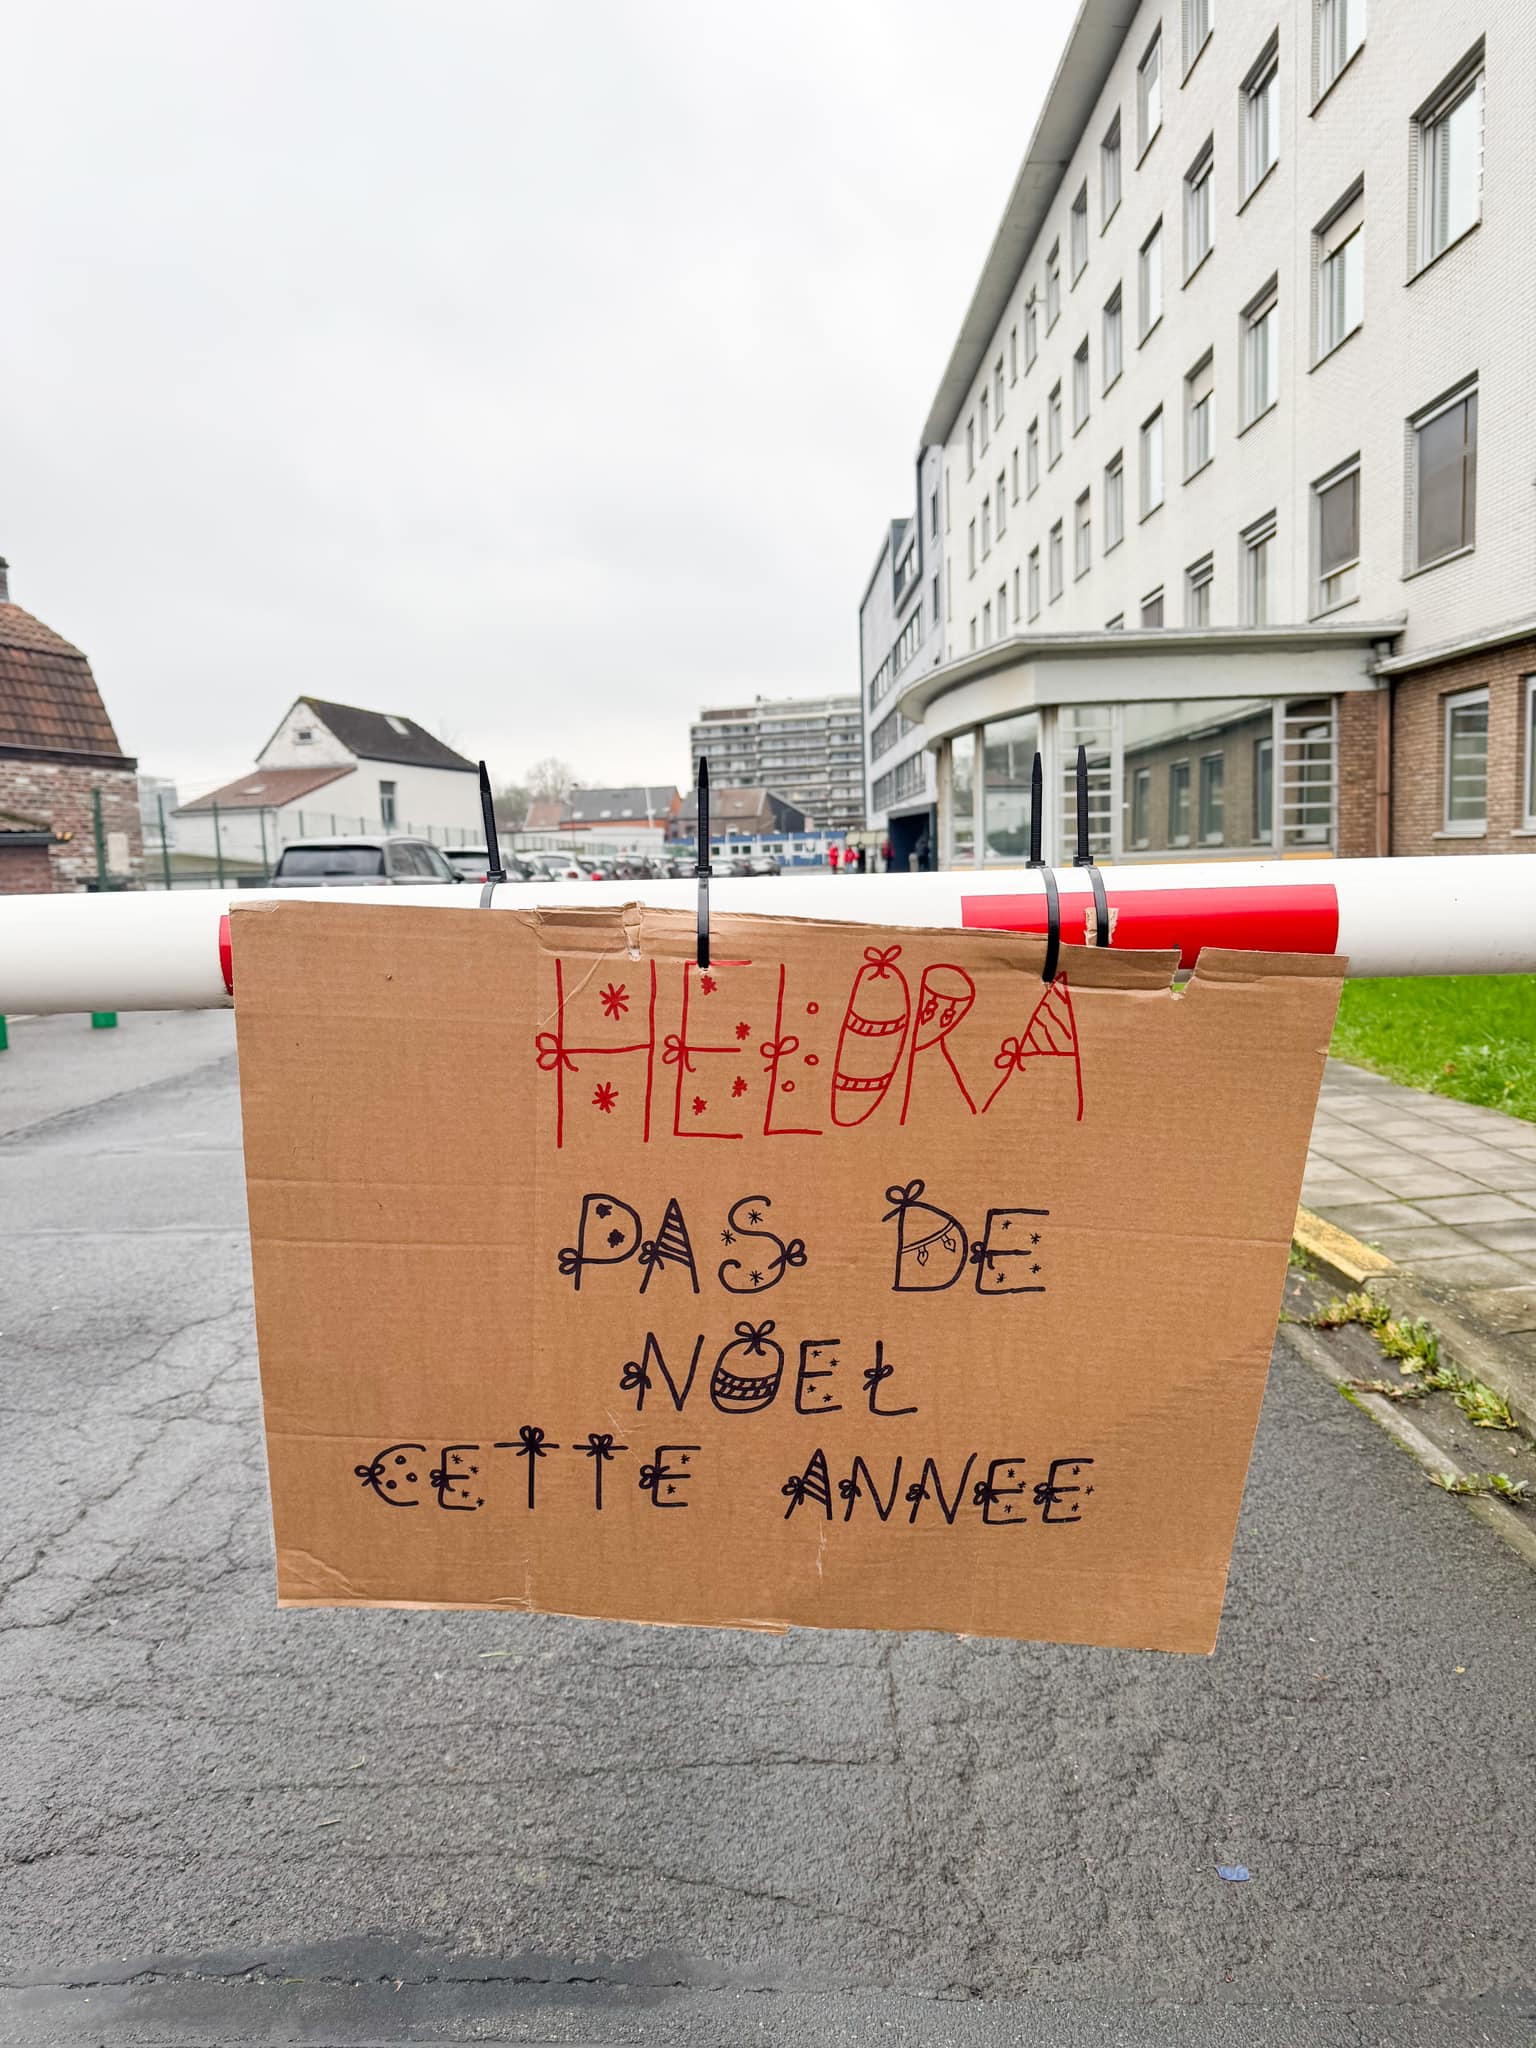 HELORA
PAS DE
NOEL
CETTE ANNEE